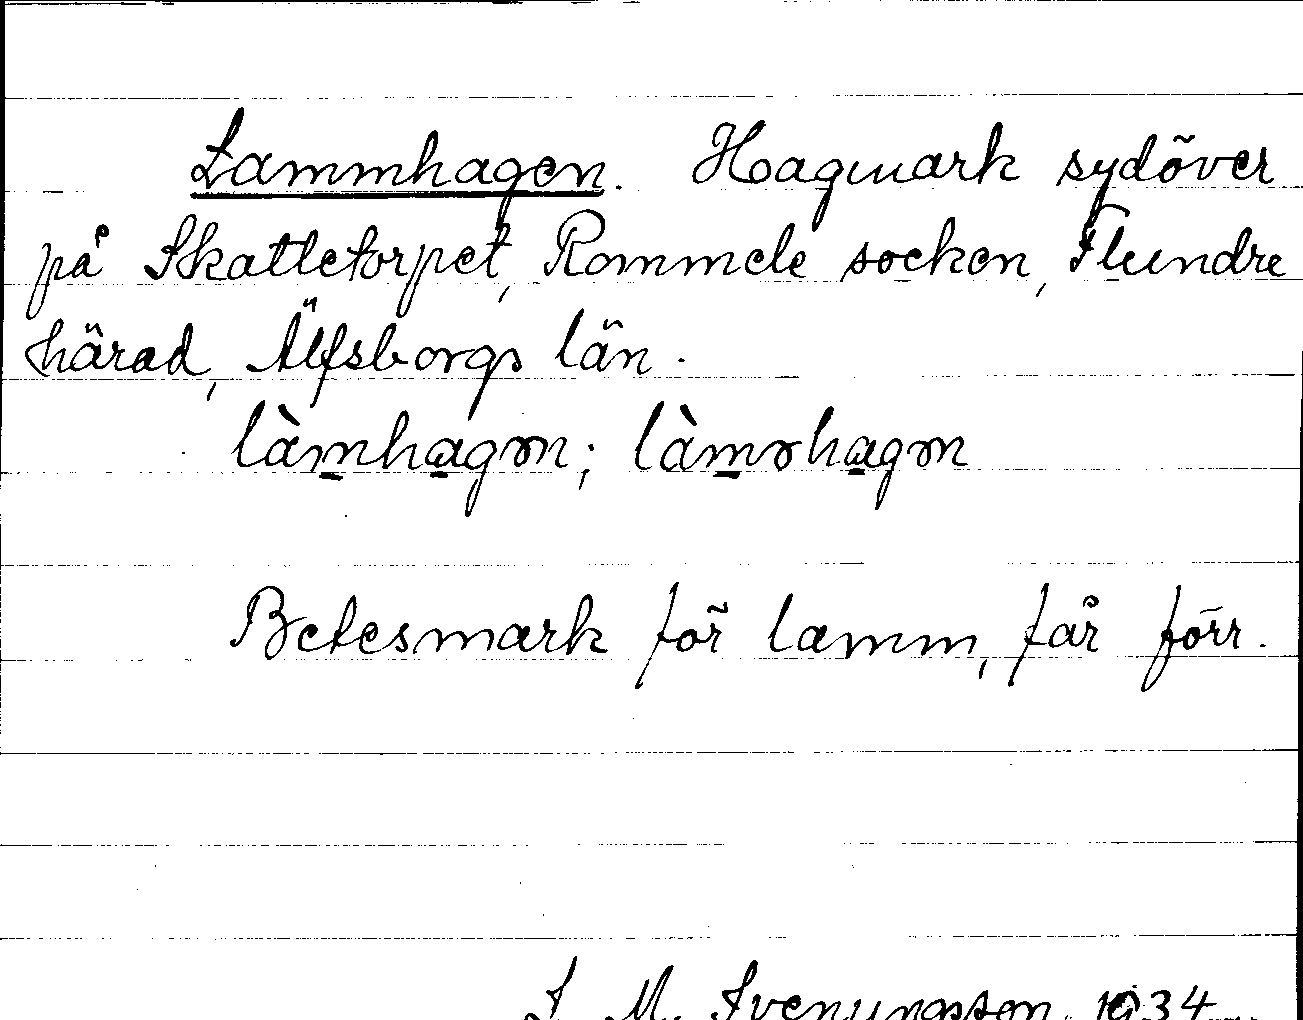 Lammhagen. Hagmark sydöver
på Skattetorpet, Rommele socken, Flundre
härad, Älfsborgs län.
làm̲ha̲gən; làm̲əha̲gən
Betesmark för lamm, får förr.
S. M. Svenungsson. 1934.